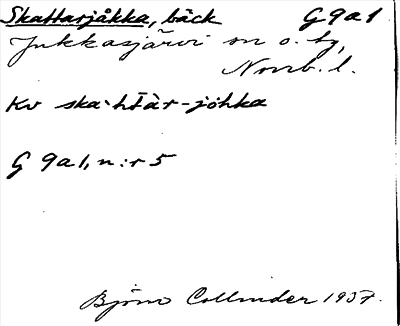 Skattarjåkka, bäck G9a1
Jukkasjärvi sn o. tg,
Norrb. l.
Kv ska·htar-johka
G 9a1, n:r 5
Björn Collinder 1937.